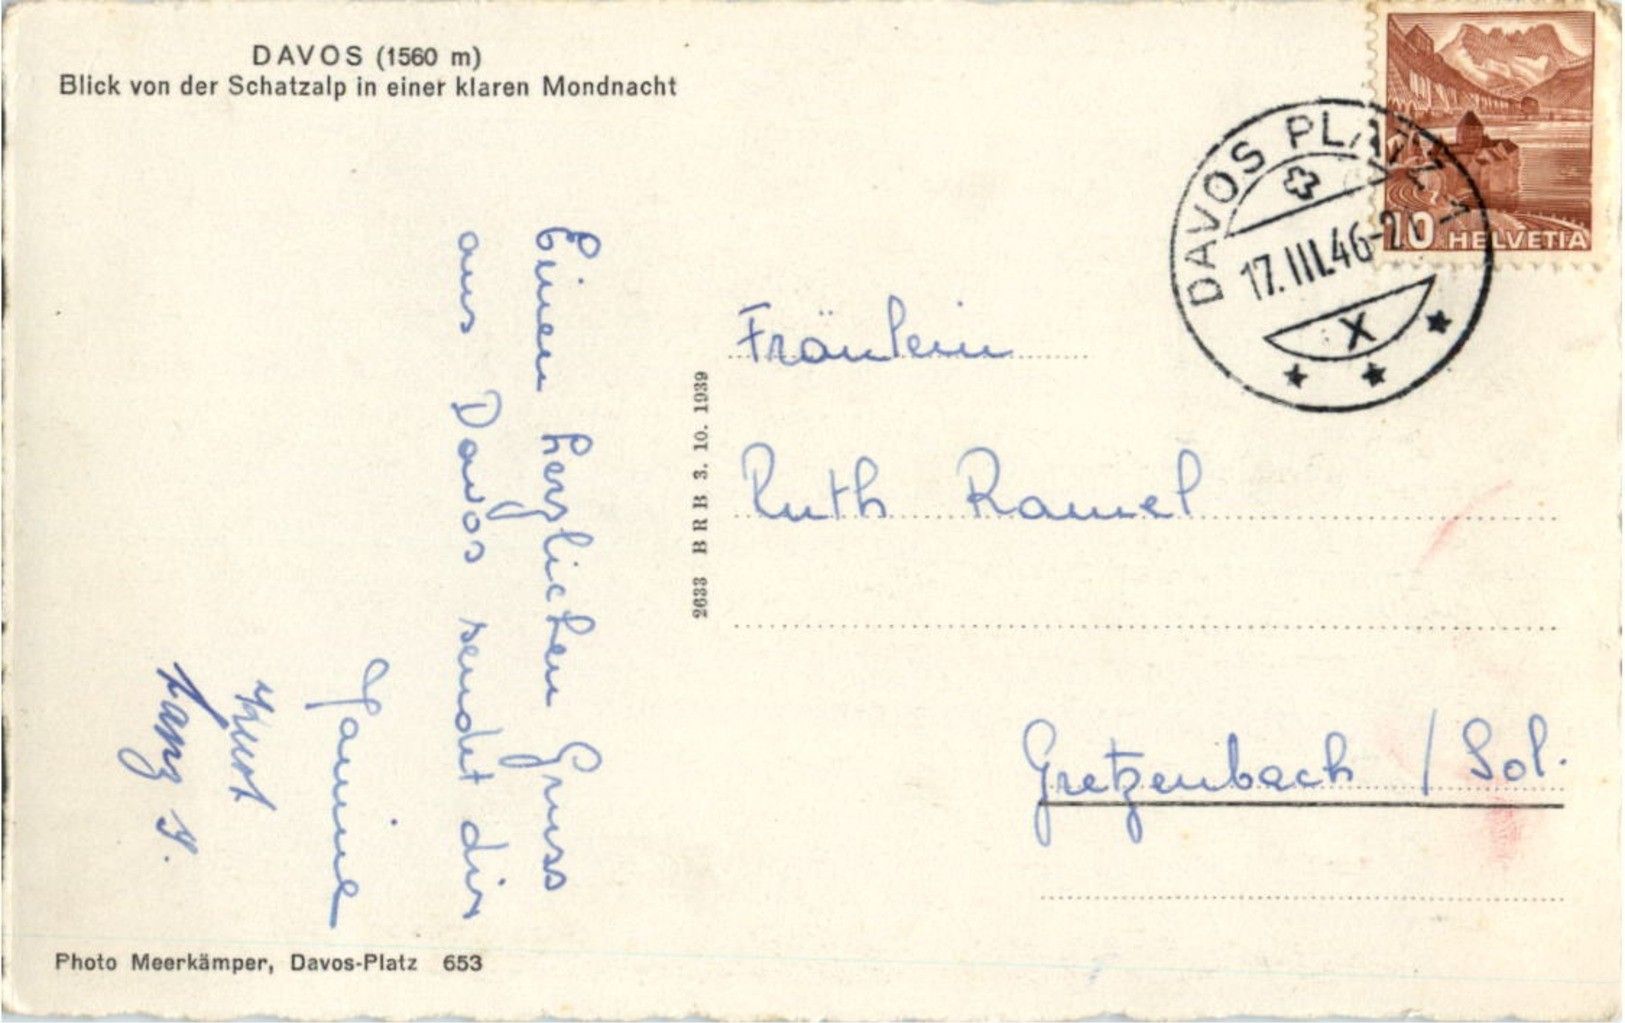 DAVOS (1560 m)
Blick von der Schatzalp in einer klaren Mondnacht
Einen herzlichen Gruss
aus Davos sendet dir
Janine
Kurt
2633 BRB 3. 10. 1939
HELVETIA
10
DAVOS PLATZ 1
17.III.46-
X
Fräulein
Ruth Ramel
Gretzenbach / Sol.
Photo Meerkämper, Davos-Platz 653